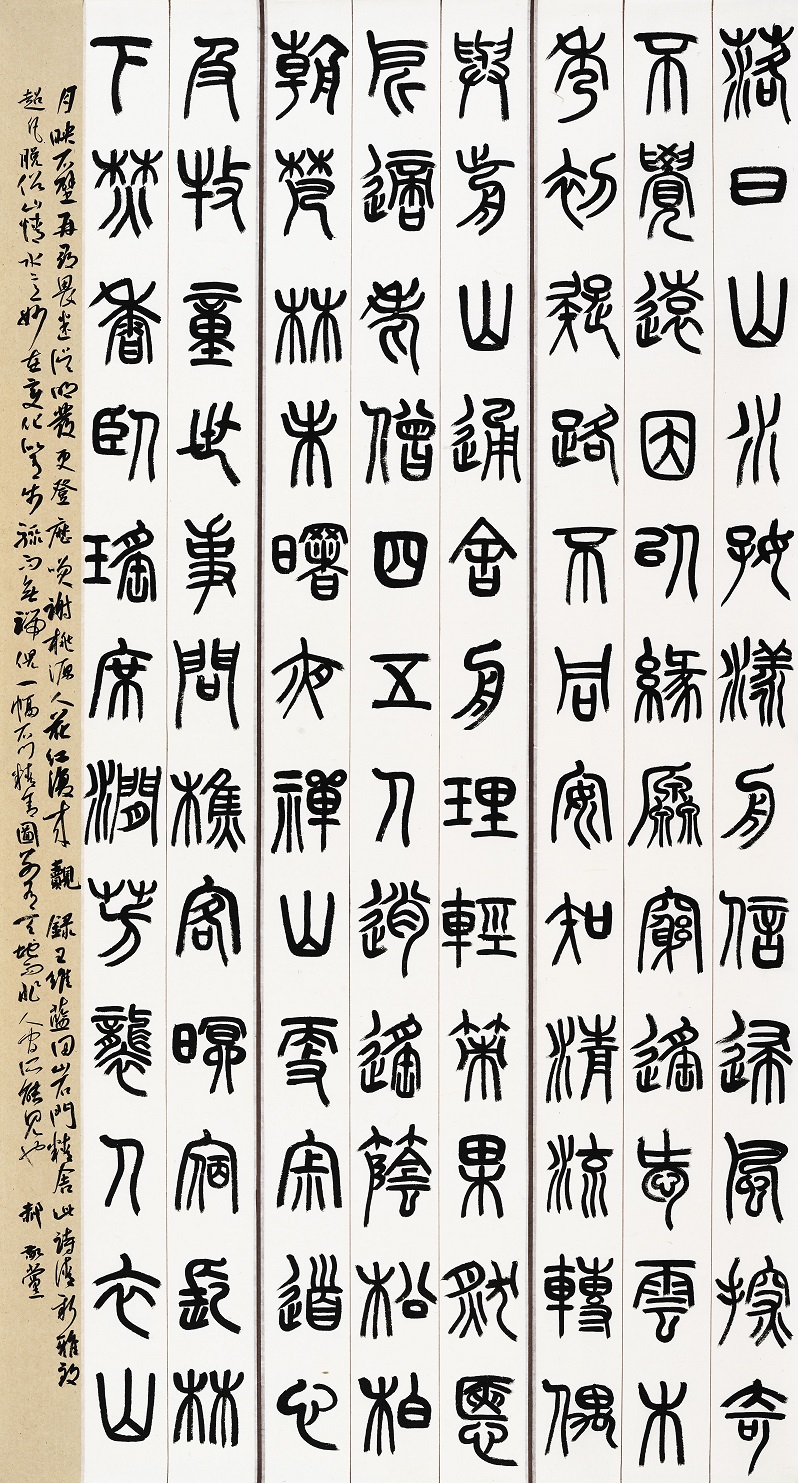 落日山水好漾舟信歸風探奇
不覺遠因以緣厵窮遙愛雲木
秀初疑路不同安知清流轉偶
與前山通舍舟理輕策果然愜
所適老僧四五人逍遙蔭松柏
朝梵林未曙夜禪山更寂道心
及牧童世事問樵客暝宿長林
下焚香臥瑤席澗芳襲人衣山
月映石壁再尋畏迷誤明發更登歷笑謝桃源人花紅復來覿 錄王維藍田山石門精舍此詩清新雅致
超凡脫俗山情水意妙在變化步移而無端儼一幅石門精舍圖天地而非人間所能見也 郝